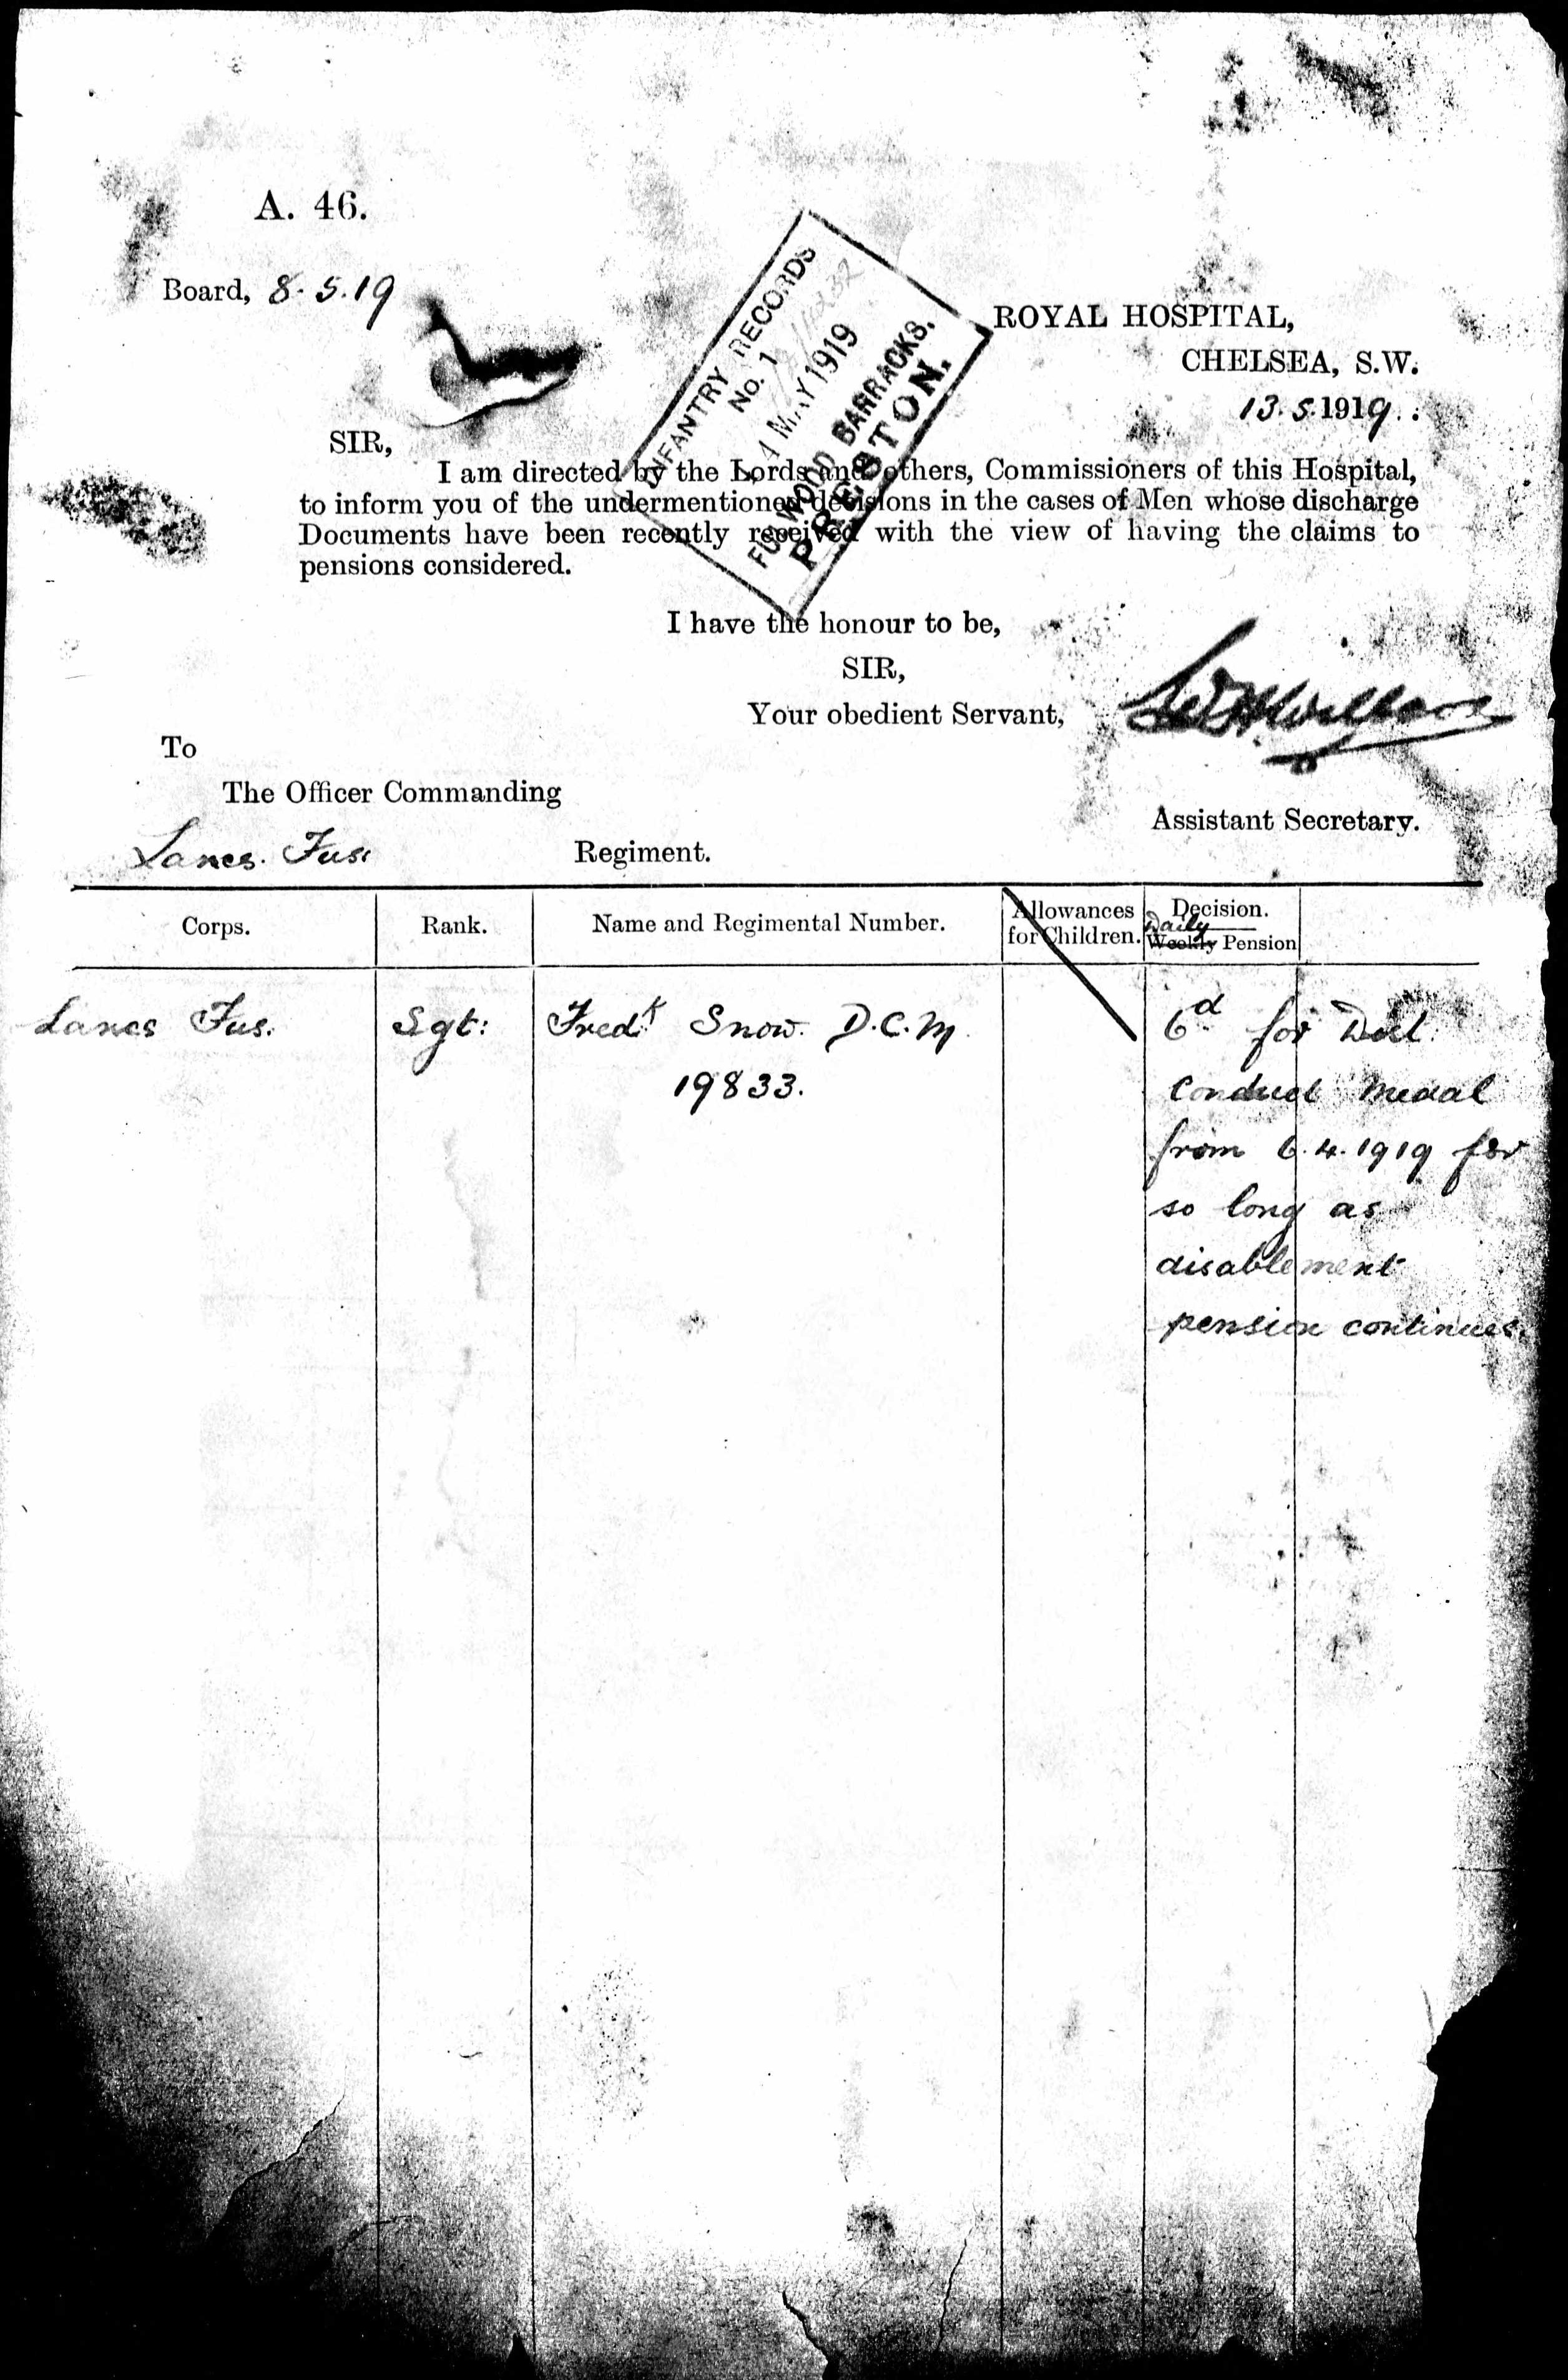 A. 46.
Board, 8.5.19
INFANTRY RECORDS
No. 1
MAY 1919
FULWOOD BARRACKS,
PRESTON.
ROYAL HOSPITAL,
CHELSEA, S.W.
13.5.1919.
SIR,
I am directed by the Lords and others, Commissioners of this Hospital,
to inform you of the undermentioned decisions in the cases of Men whose discharge
Documents have been recently received with the view of having the claims to
pensions considered.
I have the honour to be,
SIR,
Your obedient Servant,
Assistant Secretary.
To
The Officer Commanding
Lancs. Fus. Regiment.
Corps. Rank. Name and Regimental Number. Allowances for Children. Decision.
Daily
Weekly Pension
Lancs Fus. Sgt: Fredk Snow. D.C.M. 6d for
19833. Conduct Medal
from 6.4.1919 for
so long as
disablement
pension continues.